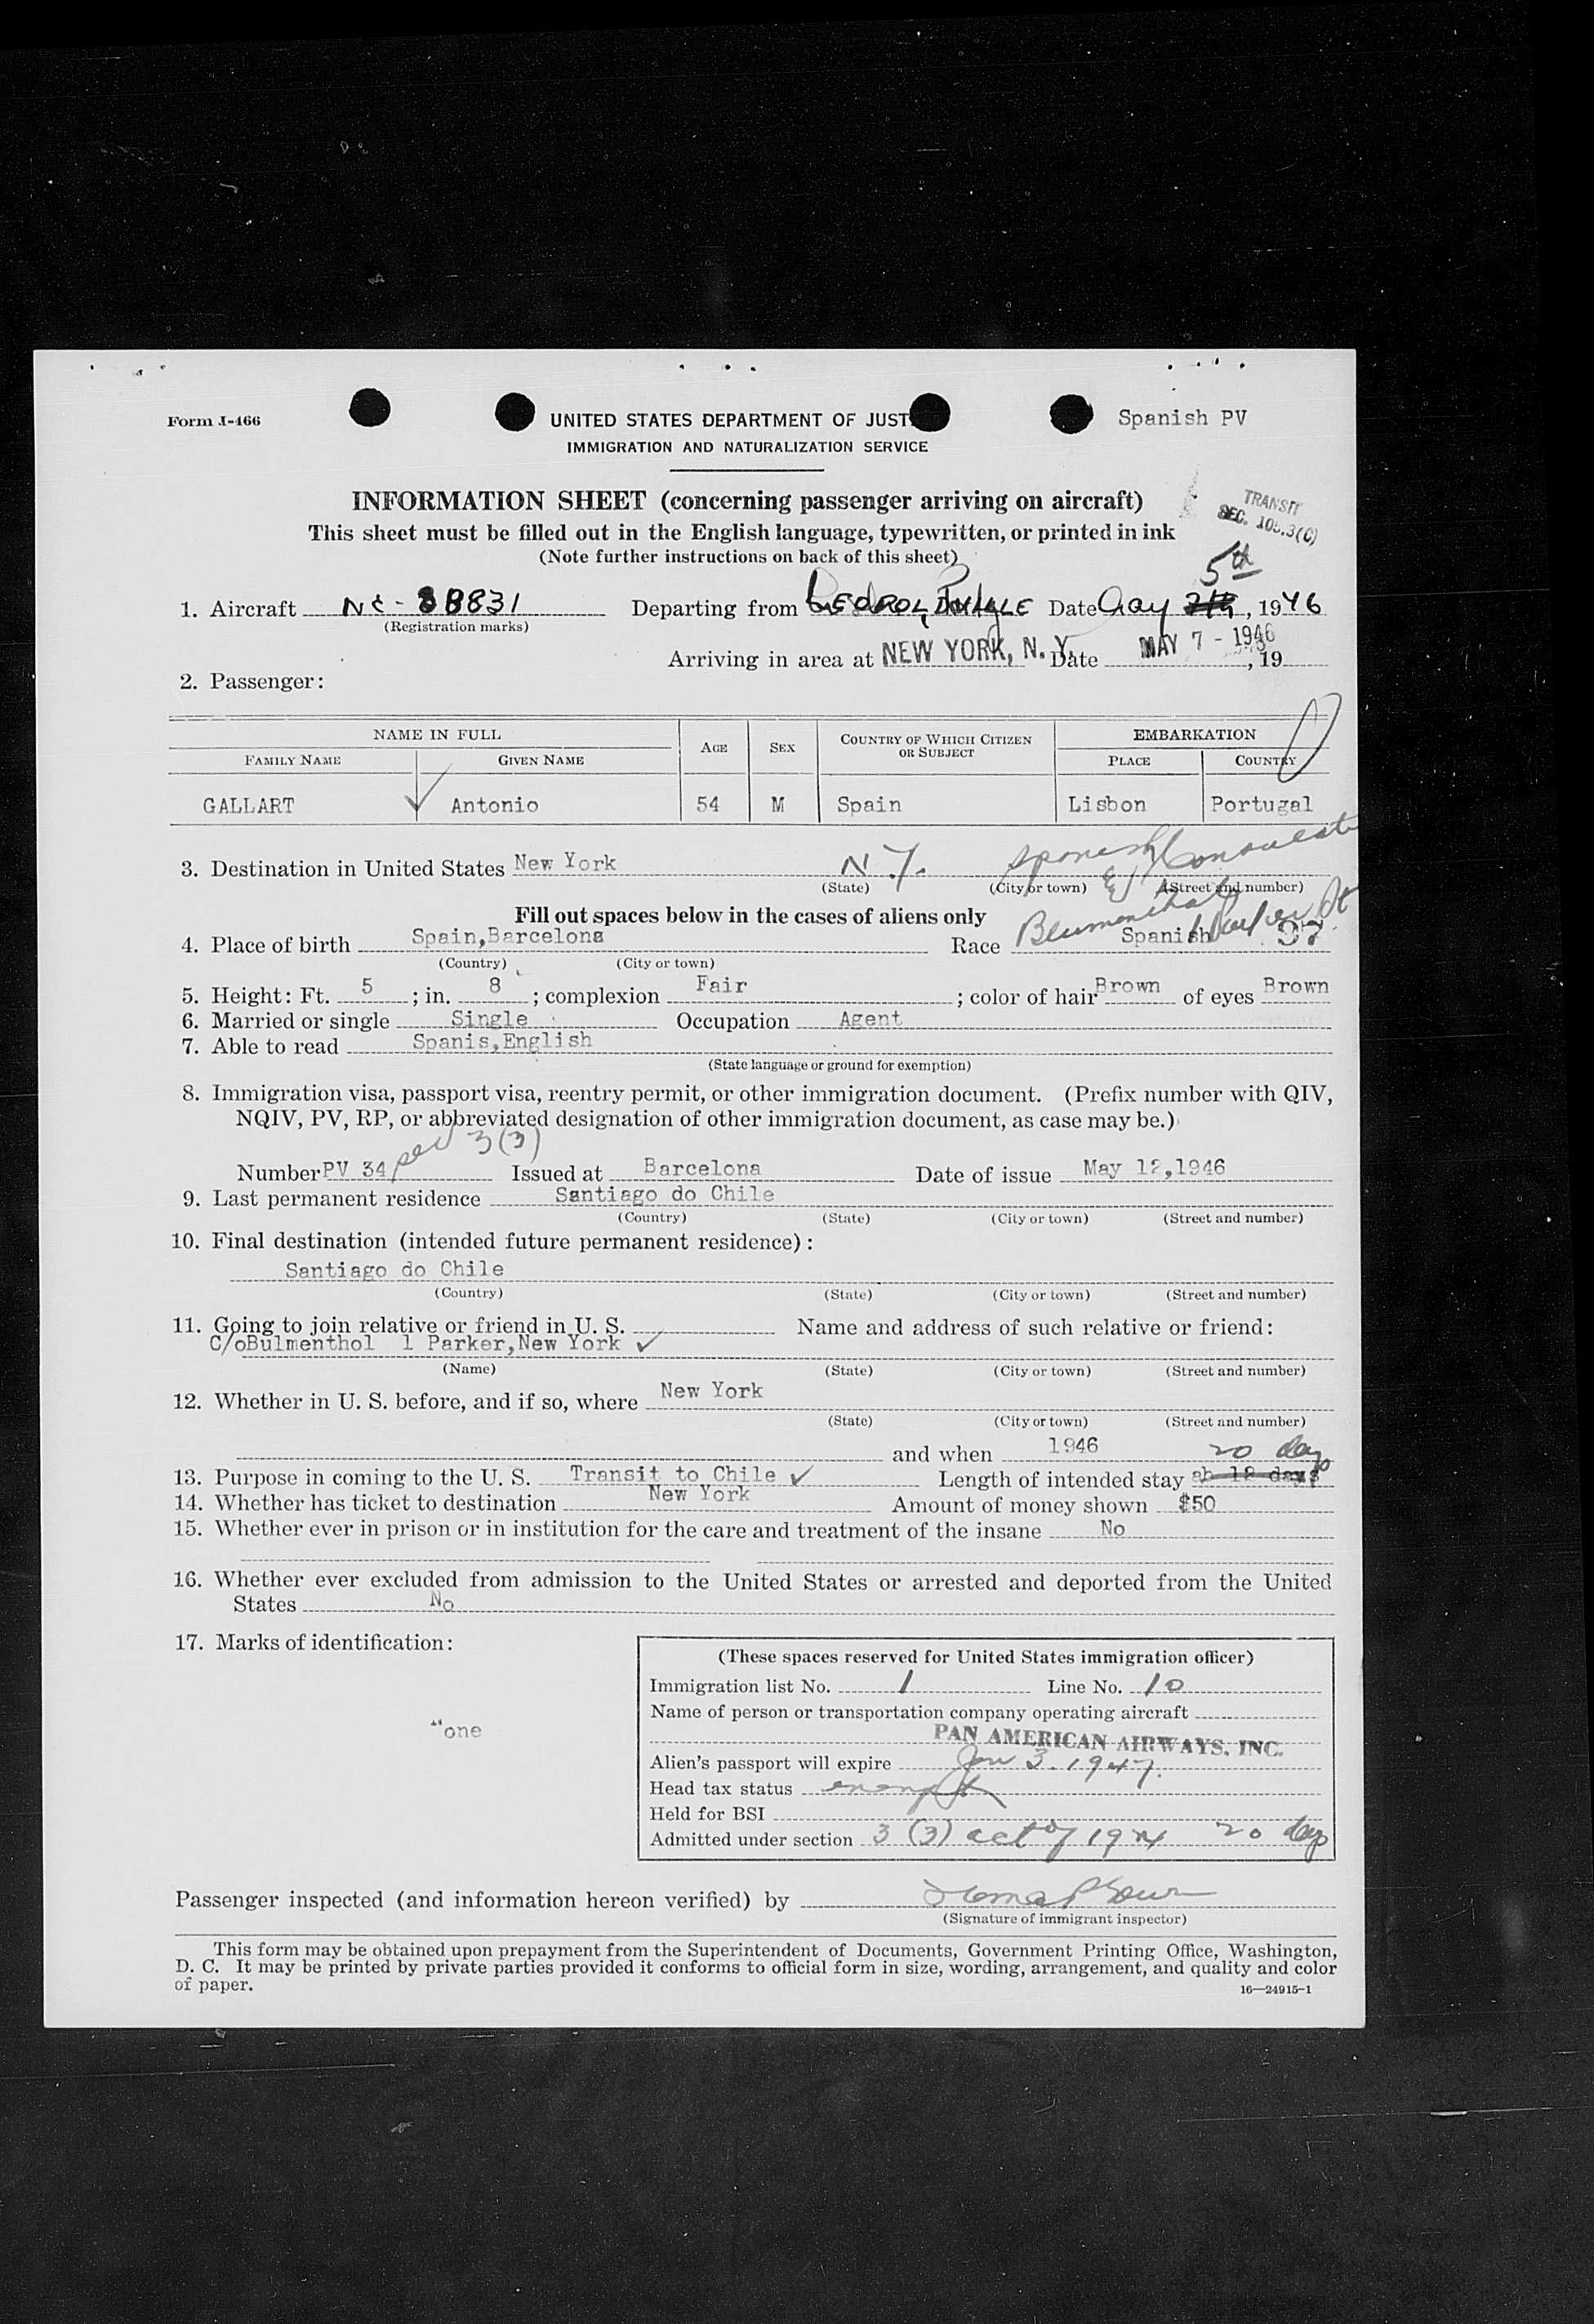 Form I-466
UNITED STATES DEPARTMENT OF JUST
Spanish PV
IMMIGRATION AND NATURALIZATION SERVICE
INFORMATION SHEET (concerning passenger arriving on aircraft)
TRANSIT
SEC. 105.3(C)
This sheet must be filled out in the English language, typewritten, or printed in ink
(Note further instructions on back of this sheet)
5th
1. Aircraft NC-88831 Departing from Date May , 1946
(Registration marks)
Arriving in area at NEW YORK, N. Y. Date MAY 7 - 1946 , 19
2. Passenger:
NAME IN FULL AGE SEX COUNTRY OF WHICH CITIZEN OR SUBJECT EMBARKATION
FAMILY NAME GIVEN NAME PLACE COUNTRY
GALLART Antonio 54 M Spain Lisbon Portugal
Spanish Consulate
3. Destination in United States New York N.Y.
(State) (City or town) (Street and number)
Fill out spaces below in the cases of aliens only
4. Place of birth Spain,Barcelona Race Spanish
(Country) (City or town)
5. Height: Ft. 5 ; in. 8 ; complexion Fair ; color of hair Brown of eyes Brown
6. Married or single Single Occupation Agent
7. Able to read Spanis,English
(State language or ground for exemption)
8. Immigration visa, passport visa, reentry permit, or other immigration document. (Prefix number with QIV,
NQIV, PV, RP, or abbreviated designation of other immigration document, as case may be.)
sec 3(3)
Number PV 34 Issued at Barcelona Date of issue May 12,1946
9. Last permanent residence Santiago do Chile
(Country) (State) (City or town) (Street and number)
10. Final destination (intended future permanent residence):
Santiago do Chile
(Country) (State) (City or town) (Street and number)
11. Going to join relative or friend in U. S. Name and address of such relative or friend:
C/oBulmenthol 1 Parker,New York ✓
(Name) (State) (City or town) (Street and number)
12. Whether in U. S. before, and if so, where New York
(State) (City or town) (Street and number)
and when 1946
20 days
13. Purpose in coming to the U. S. Transit to Chile ✓ Length of intended stay ab 12 days
14. Whether has ticket to destination New York Amount of money shown $50
15. Whether ever in prison or in institution for the care and treatment of the insane No
16. Whether ever excluded from admission to the United States or arrested and deported from the United
States No
17. Marks of identification:
one
(These spaces reserved for United States immigration officer)
Immigration list No. 1 Line No. 10
Name of person or transportation company operating aircraft
PAN AMERICAN AIRWAYS, INC.
Alien's passport will expire Jan 3. 1947.
Head tax status exempt
Held for BSI
Admitted under section 3 (3) act of 1924 20 days
Passenger inspected (and information hereon verified) by
(Signature of immigrant inspector)
This form may be obtained upon prepayment from the Superintendent of Documents, Government Printing Office, Washington,
D. C. It may be printed by private parties provided it conforms to official form in size, wording, arrangement, and quality and color
of paper.
16—24915-1